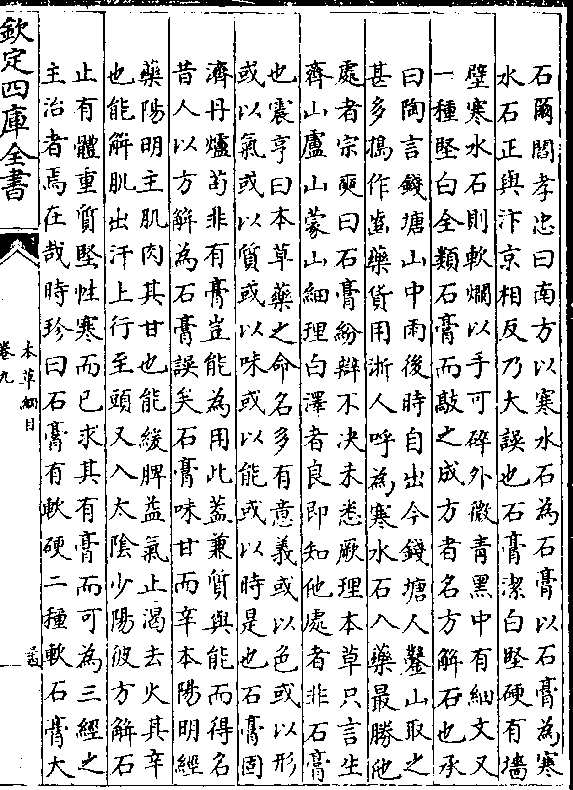 石爾閻孝忠曰南方以寒水石為石膏以石膏為寒
水石正與汴京相反乃大誤也石膏潔白堅硬有墻
壁寒水石則軟爛以手可碎外微青黑中有細文又
一種堅白全類石膏而敲之成方者名方解石也承
曰陶言錢塘山中雨後時自出今錢塘人鑿山取之
甚多搗作齒藥貨用浙人呼為寒水石入藥最勝他
處者宗奭曰石膏紛辯不決未悉厥理本草只言生
齊山廬山蒙山細理白澤者良即知他處者非石膏
也震亨曰本草藥之命名多有意義或以色或以形
或以氣或以質或以味或以能或以時是也石膏固
濟丹爐苟非有膏豈能為用此蓋兼質與能而得名
昔人以方解為石膏誤矣石膏味甘而辛本陽明經
藥陽明主肌肉其甘也能緩脾益氣止渴去火其辛
也能解肌出汗上行至頭又入太陰少陽彼方解石
止有體重質堅性寒而已求其有膏而可為三經之
主治者焉在哉時珍曰石膏有軟硬二種軟石膏大
欽定四庫全書
本草綱目
卷九